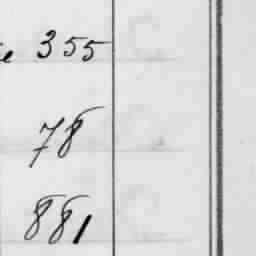 355
78
881